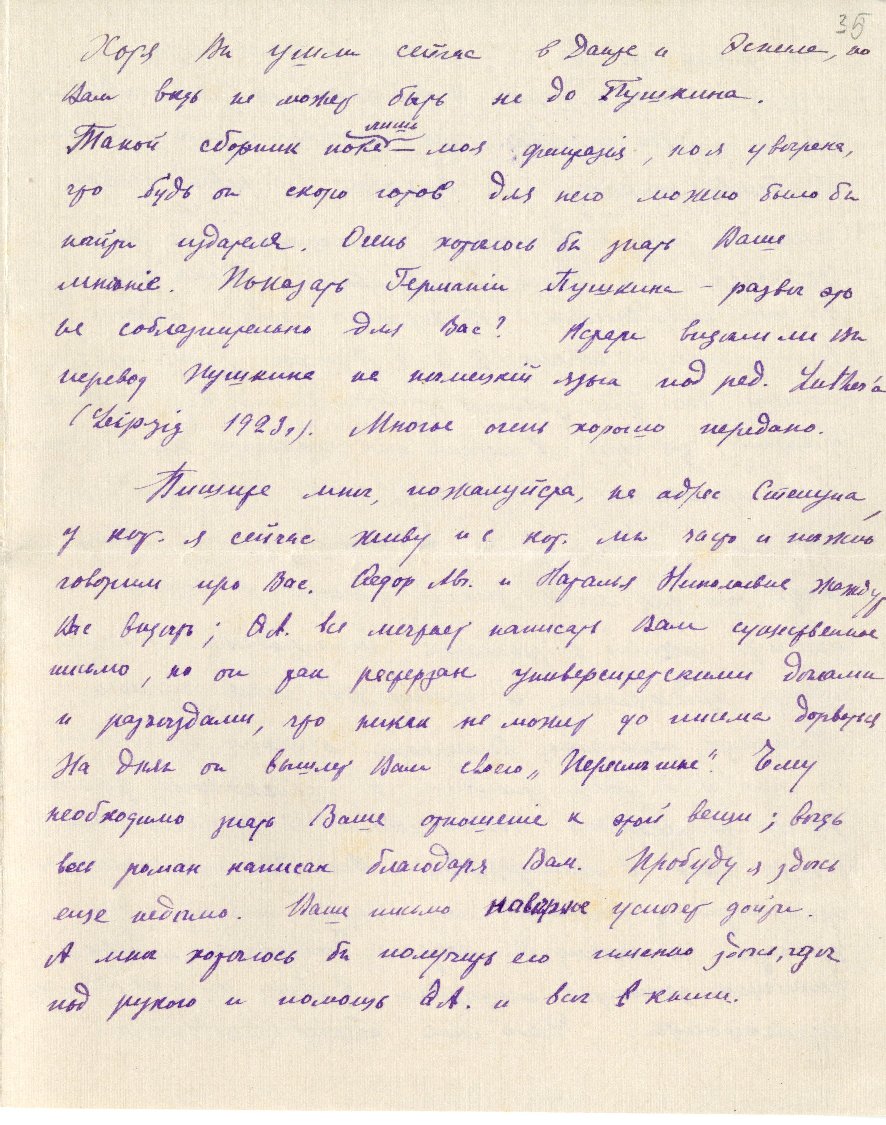 35
Хотя Вы ушли сейчас в Данте и Эсхила, но
Вам ведь не может быть не до Пушкина.
Такой сборник пока лишь — моя фантазія, но я уверена,
что будь он скоро готов для него можно было бы
найти издателя. Очень хотелось бы знать Ваше
мнѣніе. Показать Германіи Пушкина — развѣ это
не соблазнительно для Вас? Кстати видали ли Вы
перевод Пушкина на нѣмецкій язык под ред. Luther'a
(Leipzig 1923 г.). Многое очень хорошо передано.
Пишите мнѣ, пожалуйста, на адрес Степуна,
у кот. я сейчас живу и с кот. мы часто и нѣжно
говорим про Вас. Федор Авг. и Наталья Николаевна жаждут
Вас видѣть; Ф.А. все мечтает написать Вам существенное
письмо, но он так растерзан университетскими дѣлами
и разъѣздами, что никак не может до письма дорваться
На днях он вышлет Вам своего „Переслѣгина". Ему
необходимо знать Ваше отношеніе к этой вещи; вѣдь
весь роман написан благодаря Вам. Пробуду я здѣсь
еще недѣлю. Ваше письмо навѣрное успѣет дойти.
А мнѣ хотѣлось бы получить его именно здѣсь, гдѣ
под рукою и помощь Ф.А. и всѣ книги.